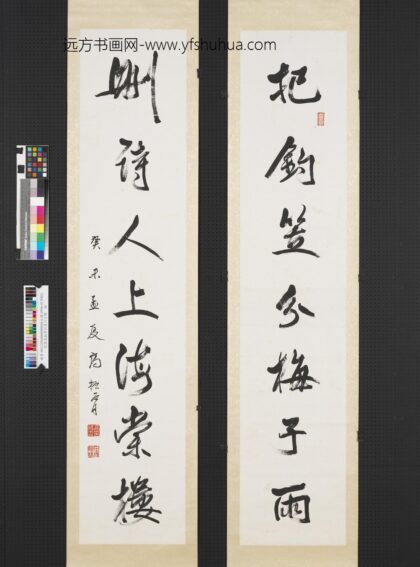 远方书画网-www.yfshuhua.com
把釣笠分梅子雨
刪詩人上海棠樓
癸未孟夏高振霄